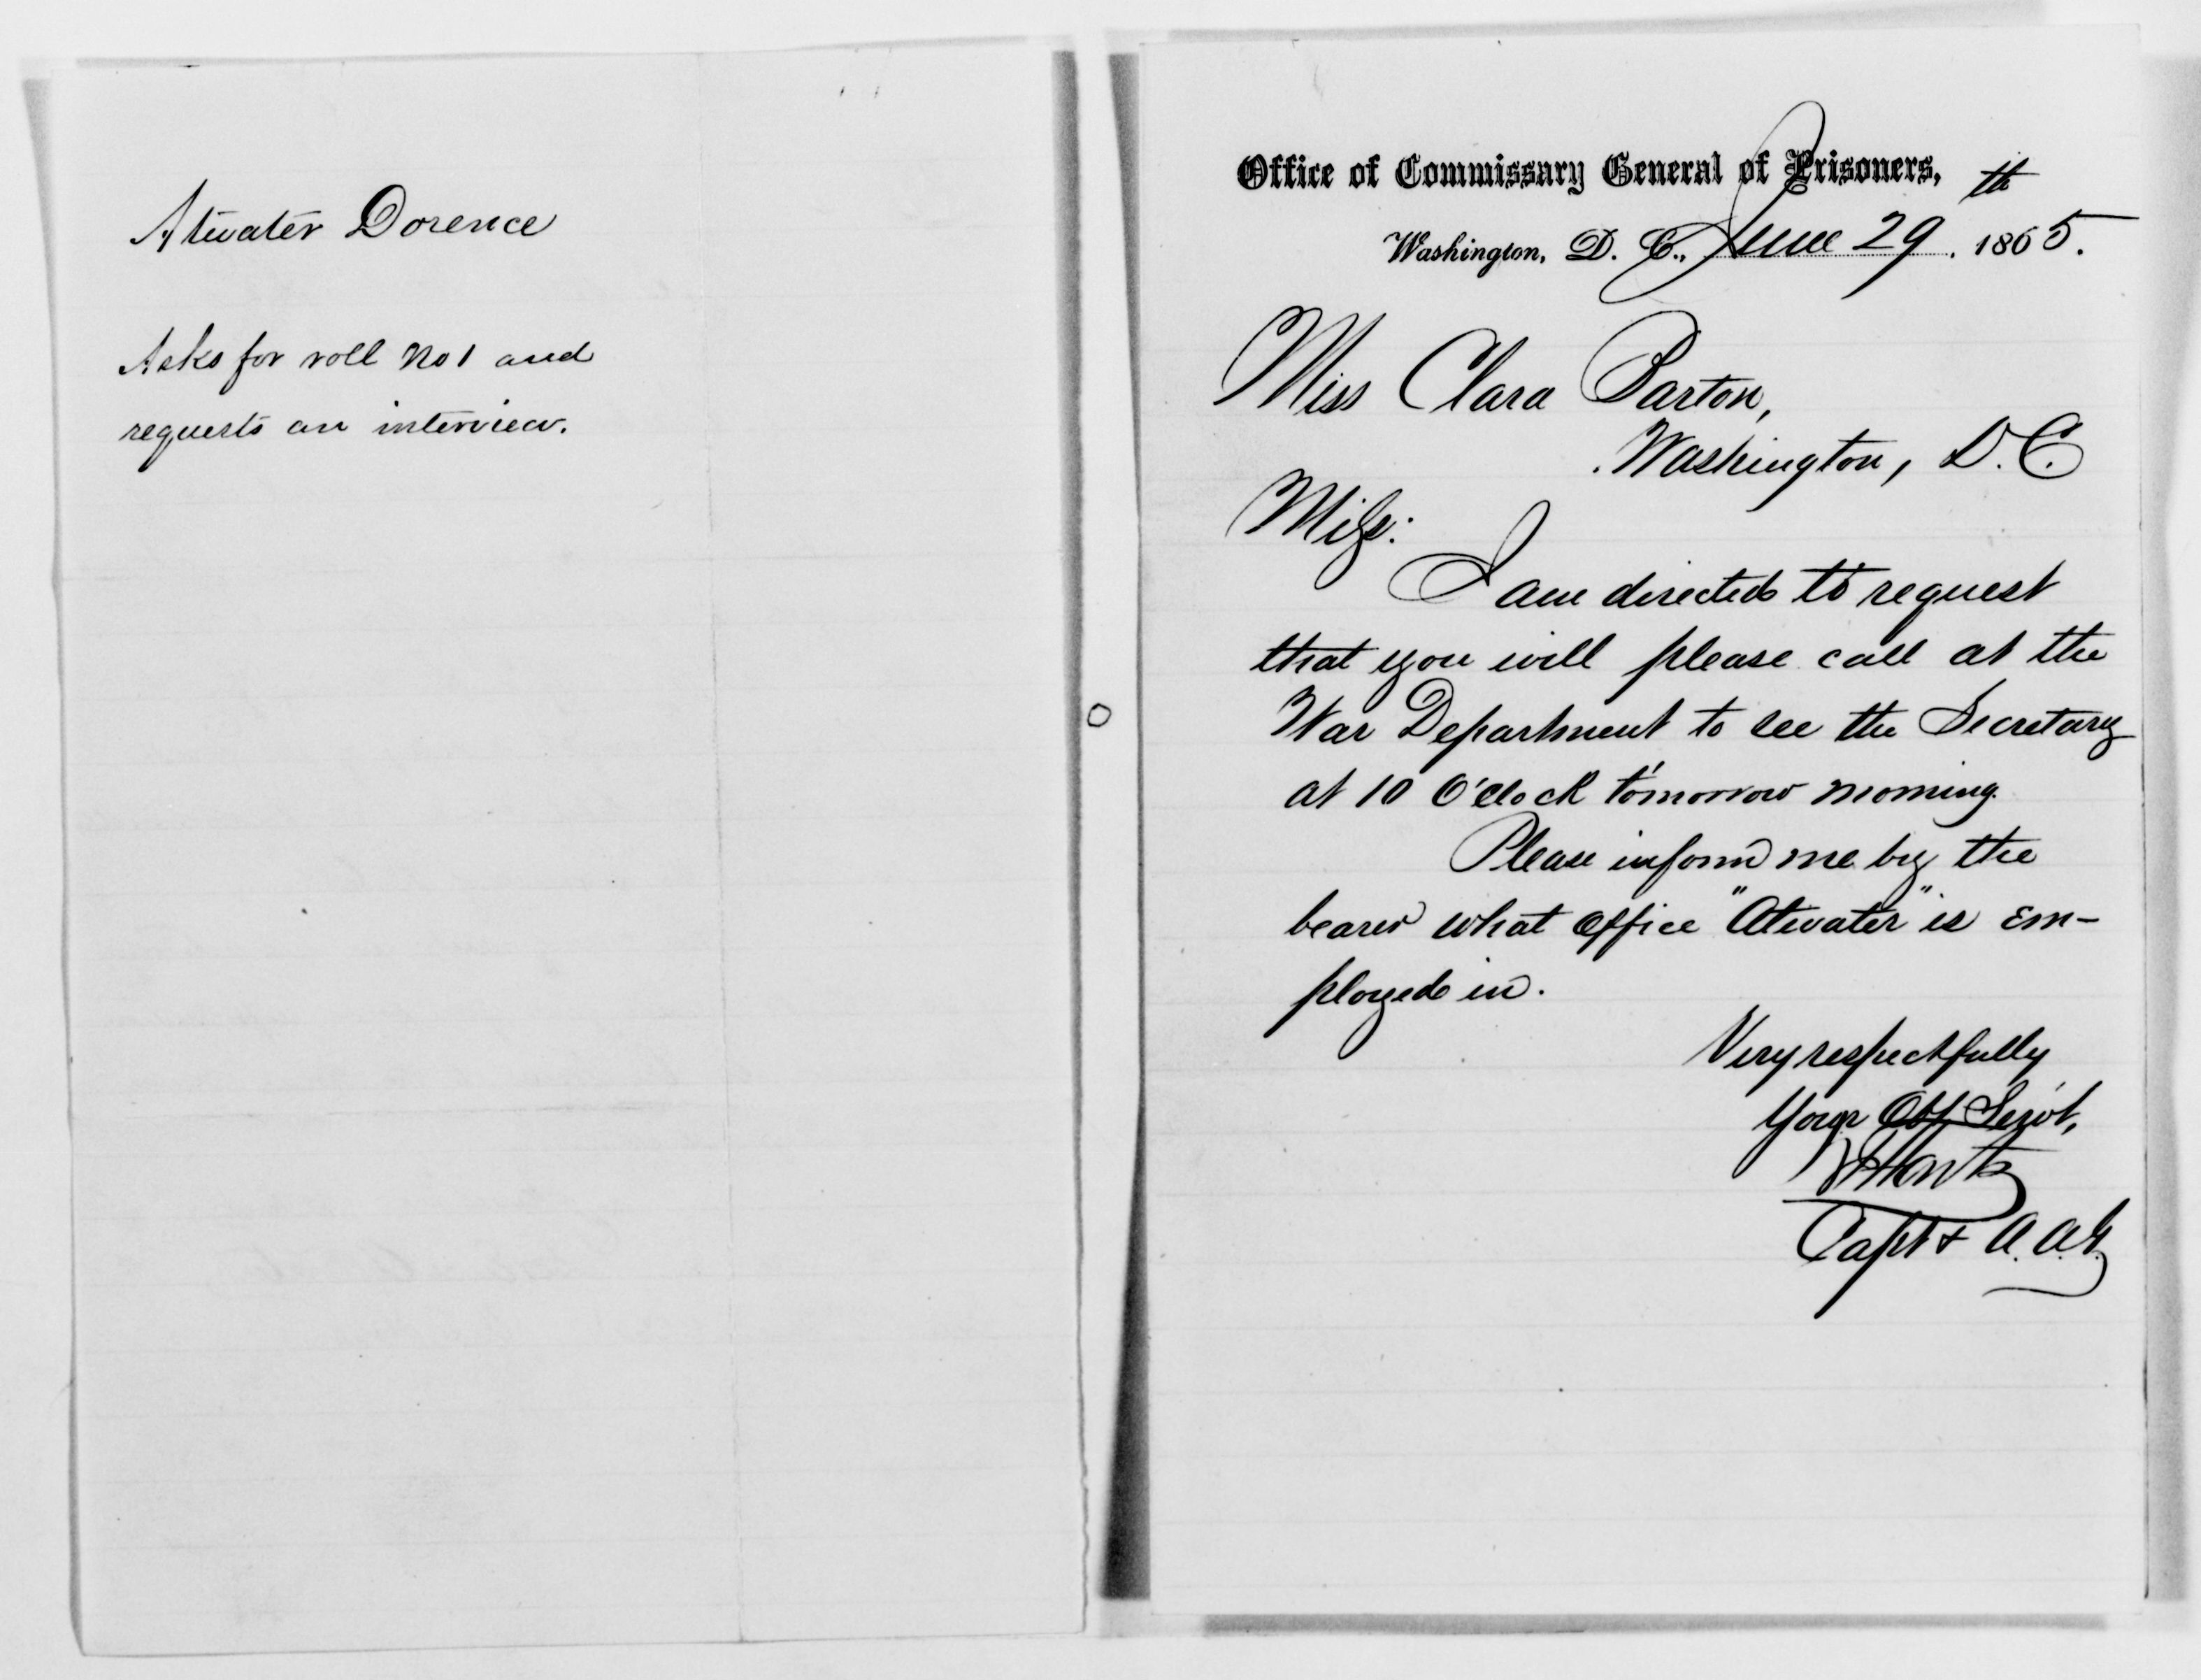 Atwater Dorence
Asks for roll No 1 and
requests an interview.
Office of Commissary General of Prisoners,
Washington, D. C., June 29th, 1865.
Miss Clara Barton,
Washington, D.C.
Miss:
I am directed to request
that you will please call at the
War Department to see the Secretary
at 10 O'clock tomorrow morning.
Please inform me by the
bearer what office "Atwater" is em-
ployed in.
Very respectfully
Your Obt Servt,
Capt & A.A.G.